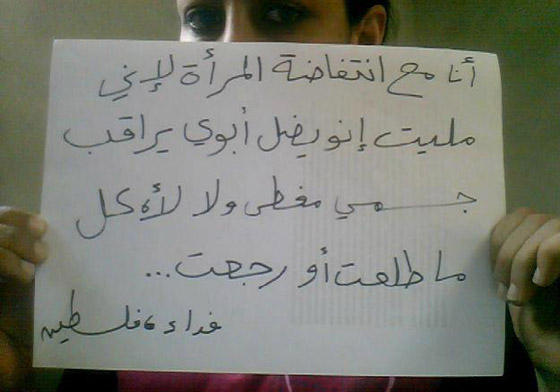 أنا مع انتفاضة المرأة لإني
مليت إنو يضل أبوي يراقب
جسمي مغطى ولا لأه كل
ما طلعت أو رجعت...
فداء، فلسطين